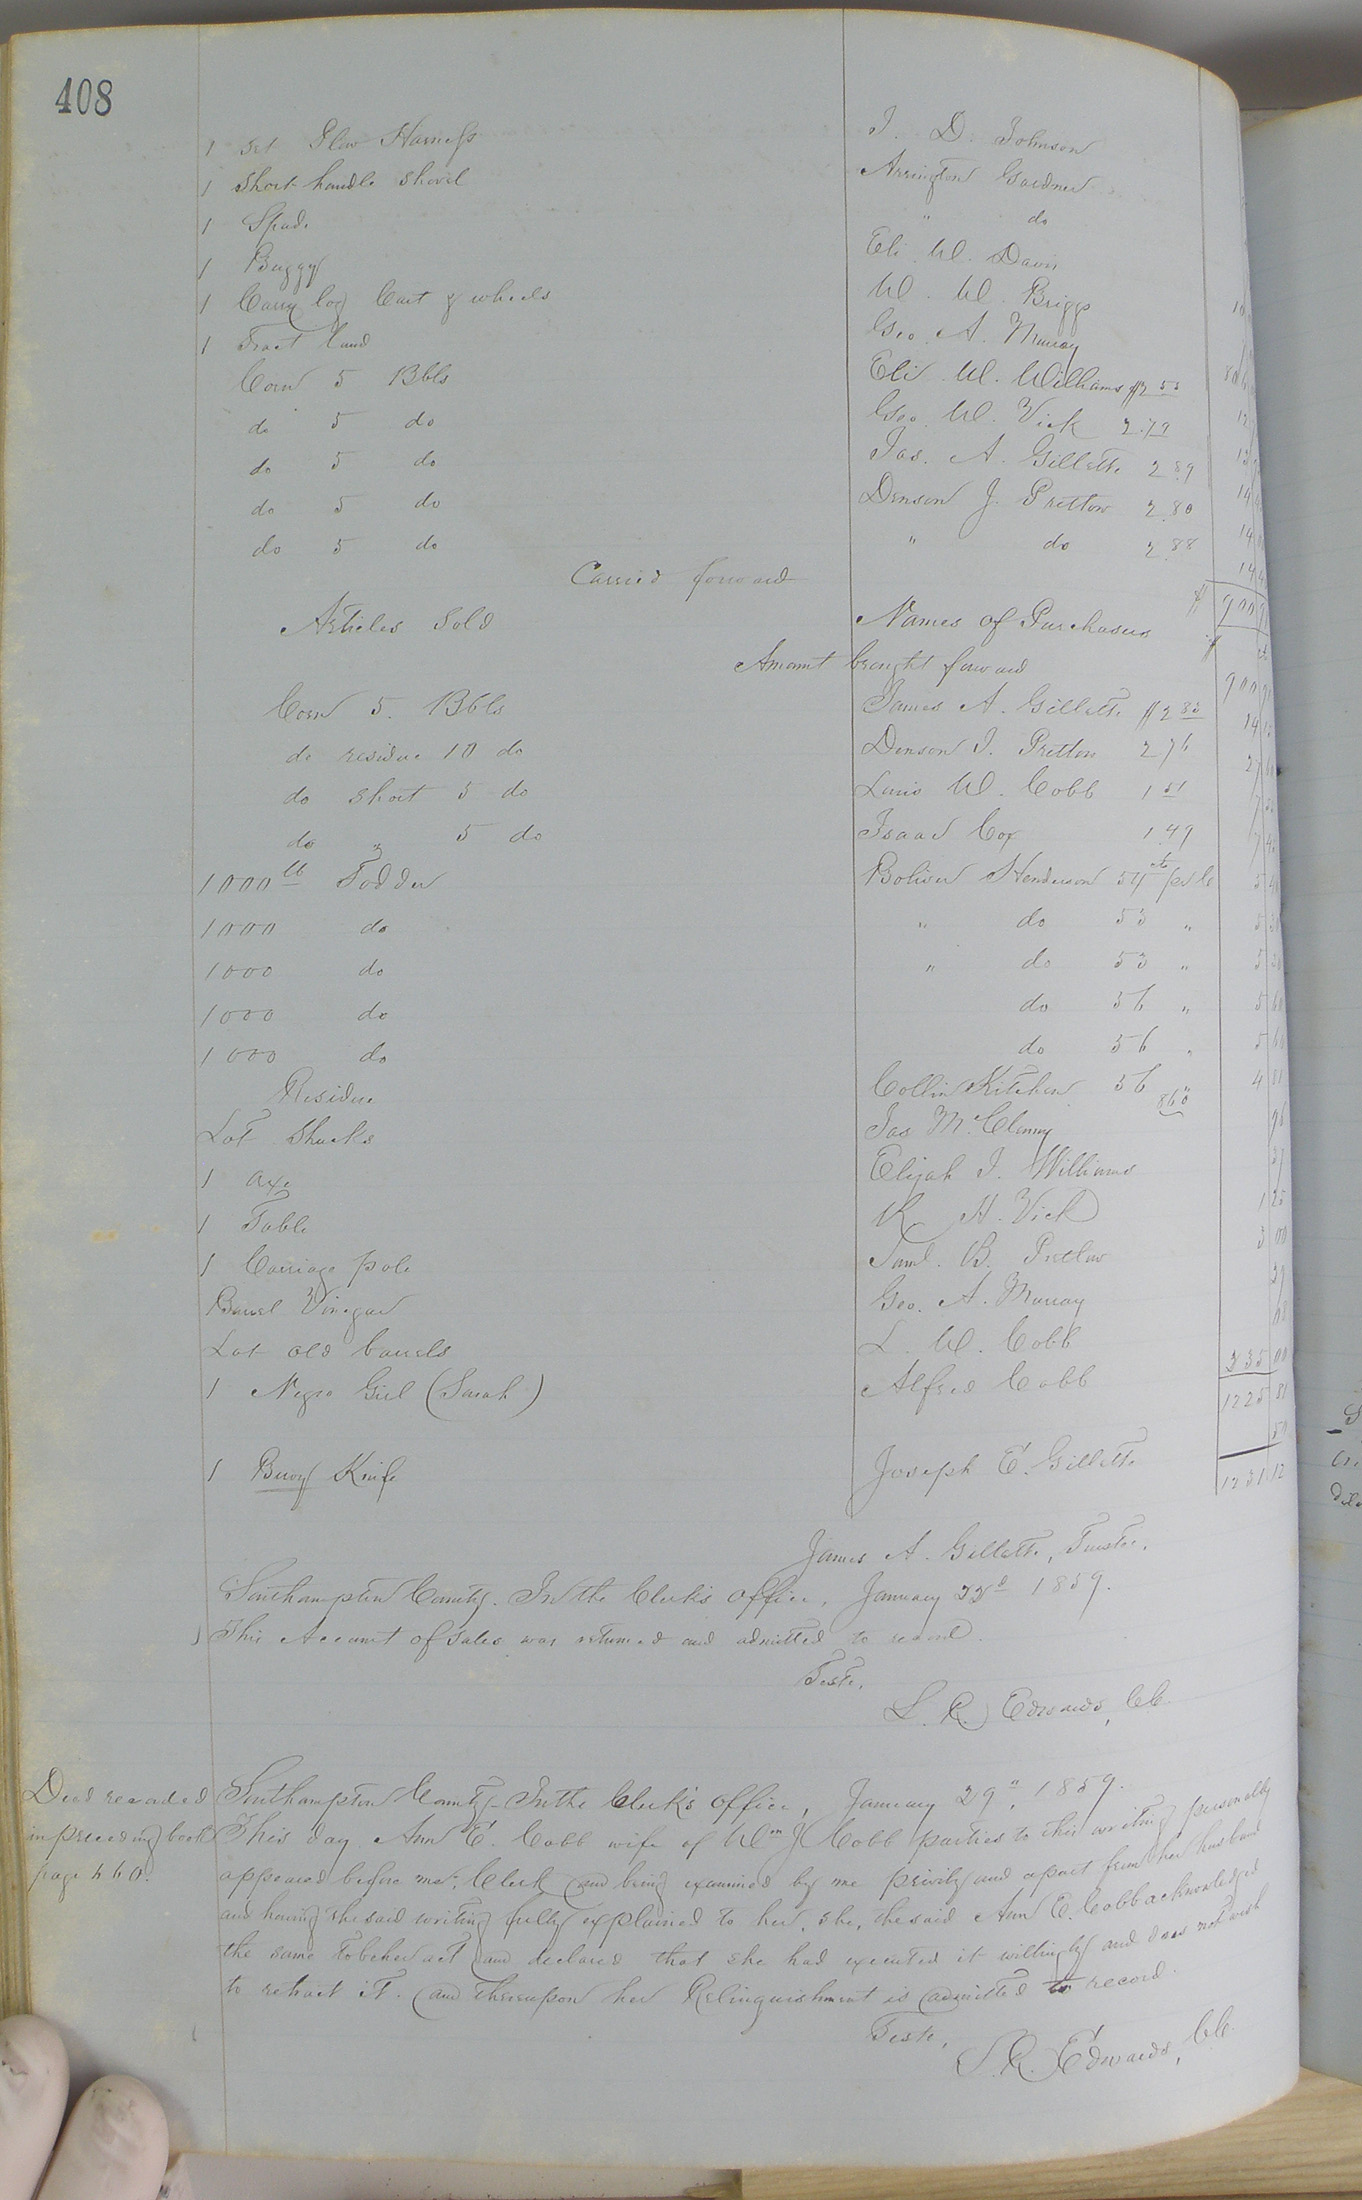 408
1 set Plow Harness J. D. Johnson
1 Short handle shovel Arrington Gardner
1 Spade " do
1 Buggy Eli W. Davis
1 Carry log Cart & wheels W. W. Briggs
1 Tract Land Geo. A. Murray
Corn 5 Bbls Eli W. Williams
do 5 do Geo. W. Vick 2.79
do 5 do Jas. A. Gillette 2 89
do 5 do Denson J. Pretlow 2.80
do 5 do " do 2.88
Carried forward
Articles Sold Names of Purchasers
Amount brought forward
Corn 5 Bbls James A. Gillette
do residue 10 do Denson J. Pretlow 2 76 27
do short 5 do Lewis W. Cobb 1 51 7
do " 5 do Isaac Cox 1.49 7
1000 lb Fodder Boliver Henderson 54 cts 5 40
1000 do " do 53 " 5 30
1000 do " do 53 " 5
1000 do do 56 " 5 60
1000 do do 56 " 5 60
Residue Collin Kitchen 56 860 4
Lot Shucks Jas McClenny
1 axe Elijah J. Williams
1 Table R. H. Vick 1 25
1 Carriage pole Saml. B. Pretlow 3 00
Barrel Vinegar Geo. A. Murray
Lot old barrels L. W. Cobb
1 Negro Girl (Sarah) Alfred Cobb 335 00
1225 81
1 Bowy Knife Joseph E. Gillette 50
James A. Gillette, Trustee.
Southampton County. In the Clerk's Office, January 22d 1859.
This Account of sales was returned and admitted to record.
Teste,
L. R. Edwards, CC.
Deed recorded
in preceding book
page 660.
Southampton County - In the Clerk's office, January 29", 1859.
This day Ann E. Cobb wife of Wm J. Cobb parties to this writing personally
appeared before me, Clerk and being examined by me privily and apart from her husband
and having the said writing fully explained to her, she, the said Ann E. Cobb acknowledged
the same to be her act and declared that she had executed it willingly and does not wish
to retract it. And thereupon her Relinquishment is admitted to record.
Teste,
L. R. Edwards, CC.